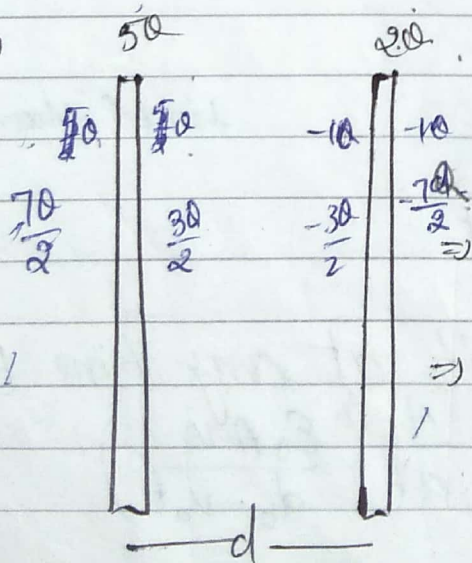 5Q 2Q
Q Q -1Q -1Q
7Q/2 3Q/2 -3Q/2 -7Q/2
=>
=>
d